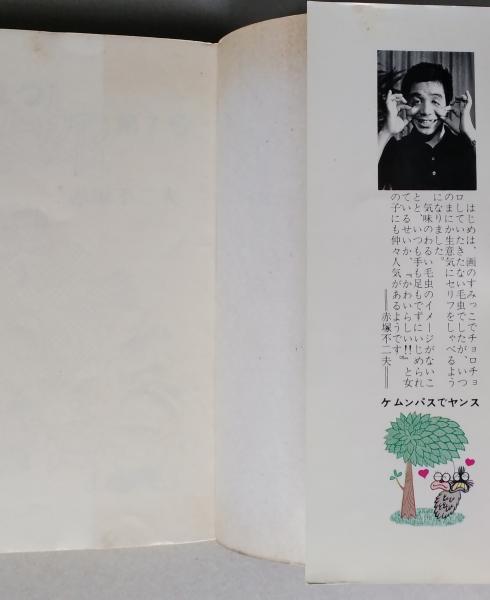 はじめは、画のすみっこでチョロチョ
ロしていたきたない毛虫でしたが、いつ
のまにか生意気にセリフをしゃべるよう
になりました。
気味のわるい毛虫のイメージがないこ
とと、いつも手も足もでずにいじめられ
ているせいか、『かわいらしい!!』と女
の子にも仲々人気があるようです。
━━赤塚不二夫━━
ケムンパスでヤンス